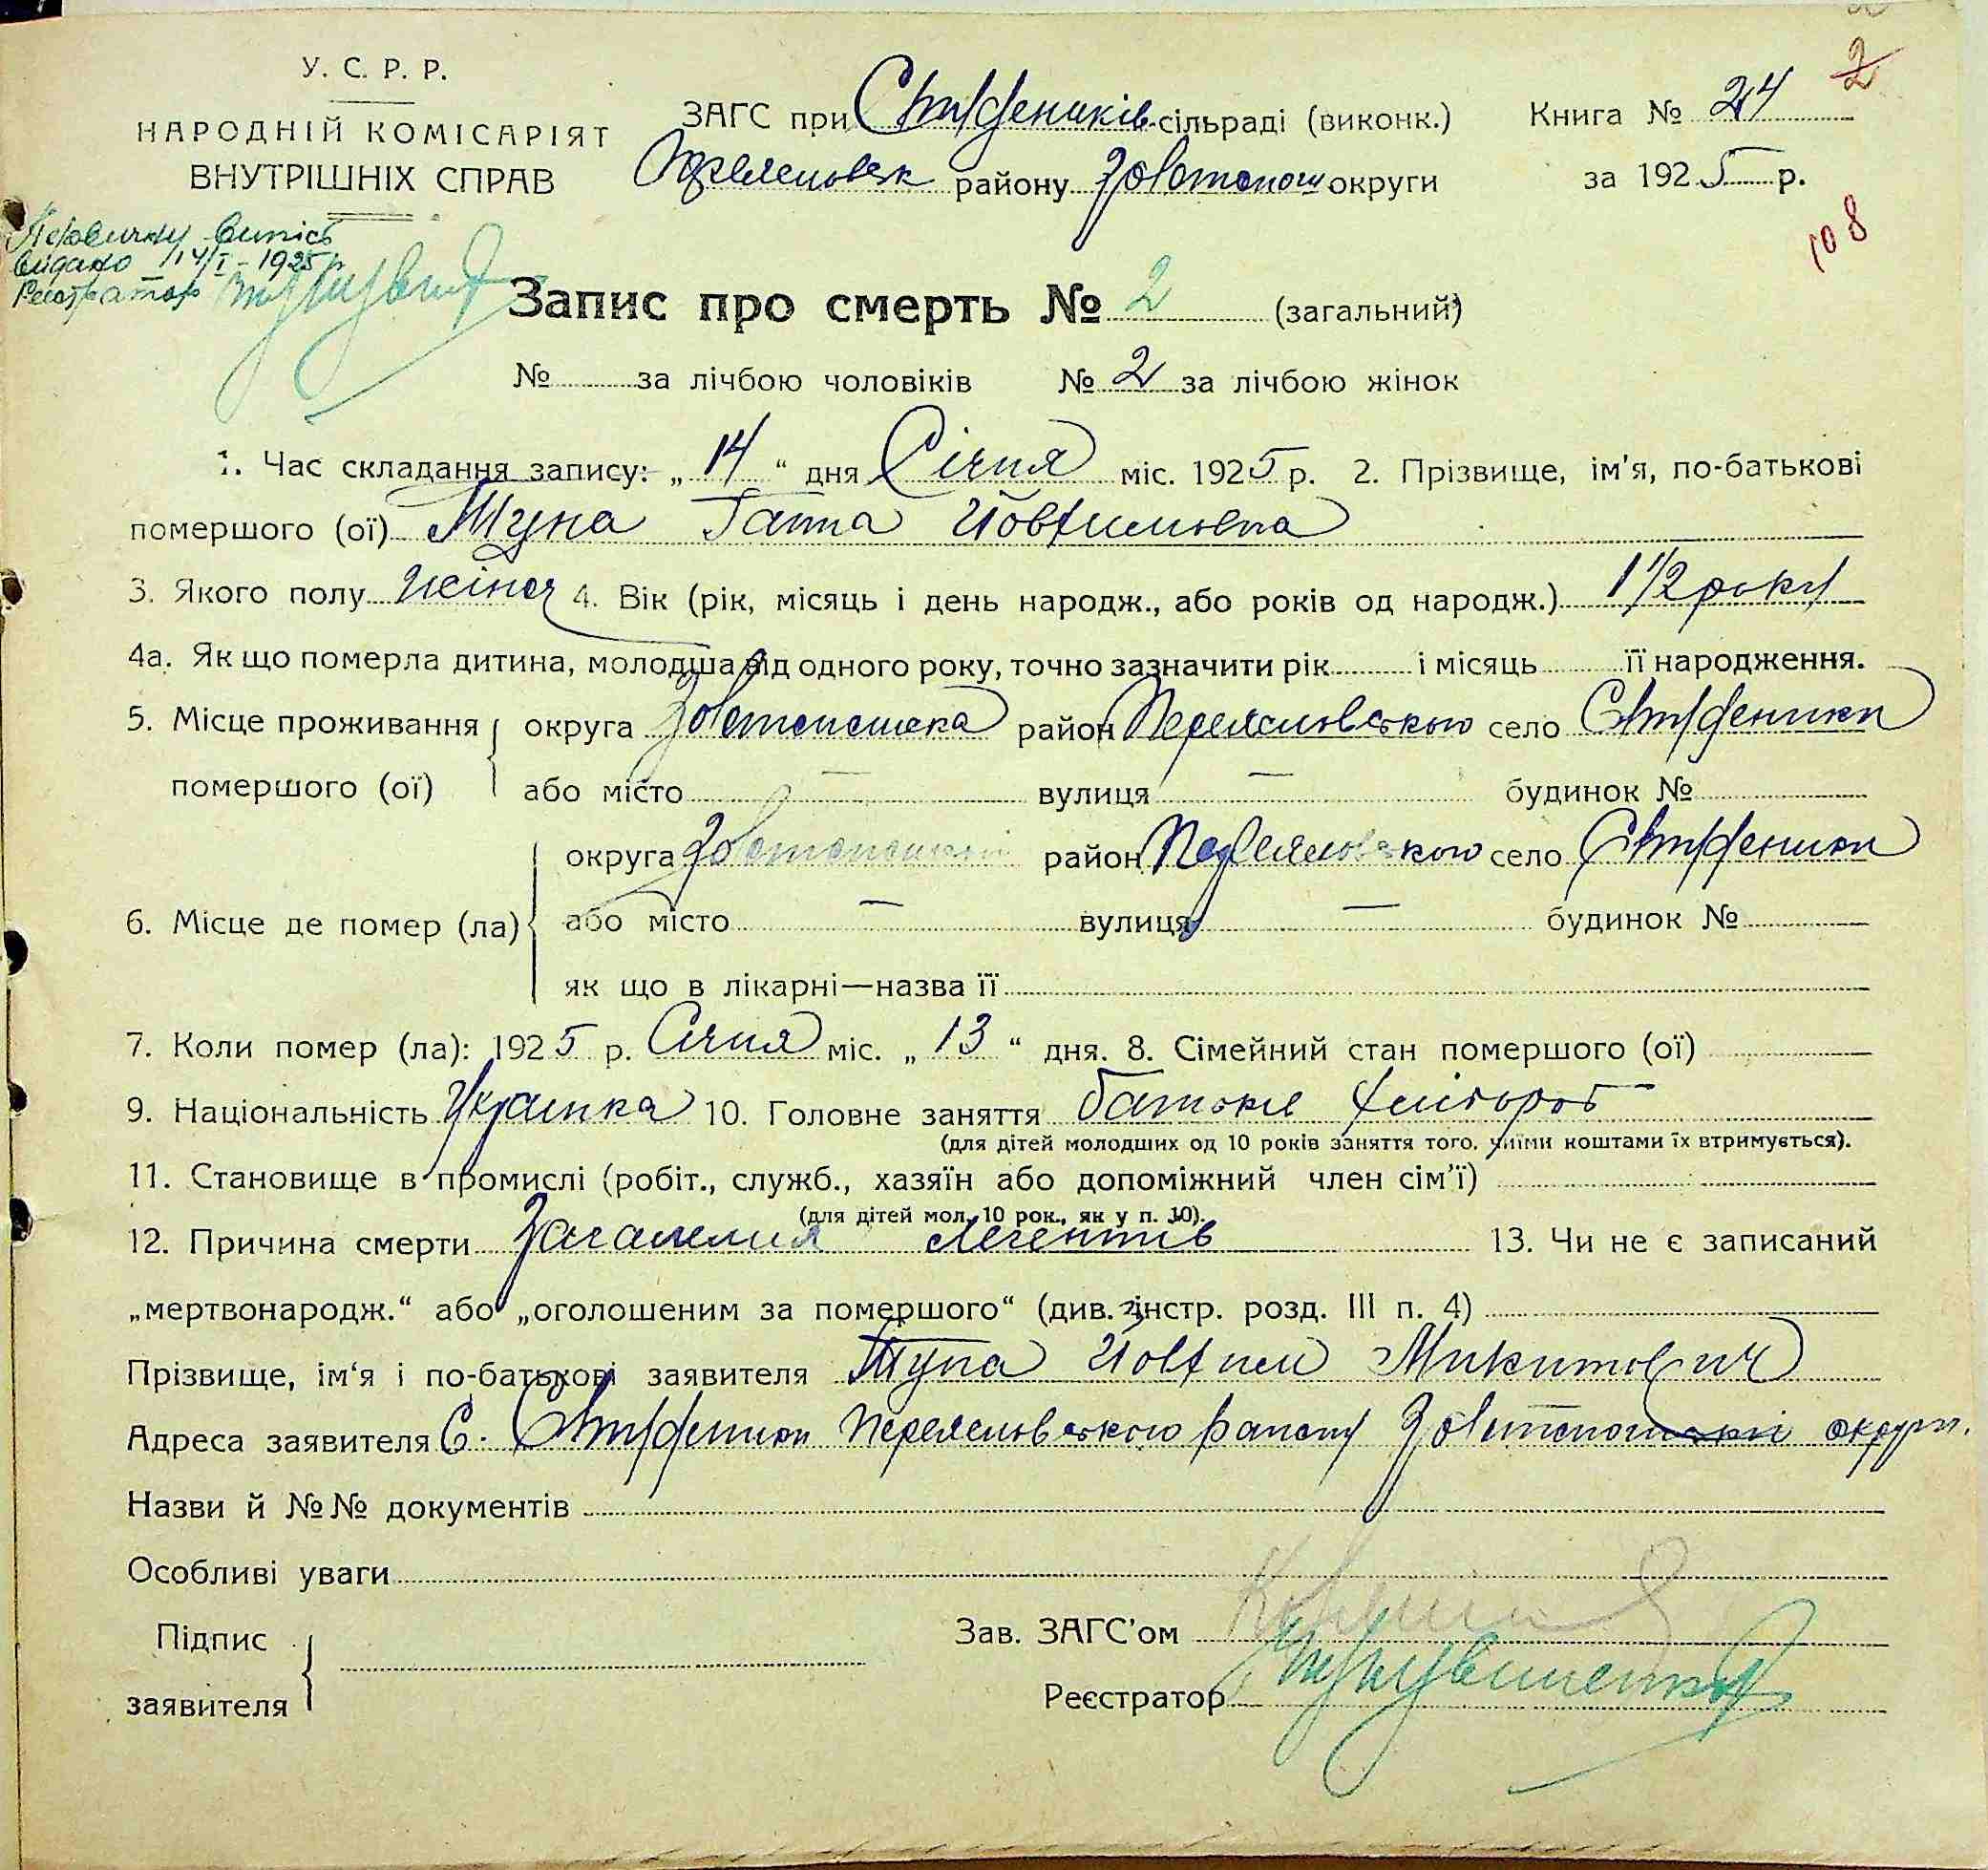 2
У. С. Р. Р.
НАРОДНІЙ КОМІСАРІЯТ
ВНУТРІШНІХ СПРАВ
ЗАГС при Стовпягиків. сільраді (виконк.)
Переяславськ району Золотонош округи
Книга № 24
за 1925 р.
108
Первичну випись
видано 14/I - 1925 р
Реєстратор
Запис про смерть № 2 (загальний)
№ за лічбою чоловіків № 2 за лічбою жінок
1. Час складання запису: „ 14 “ дня Січня міс. 1925 р. 2. Прізвище, ім'я, по-батькові
помершого (ої) Туна Ганна Йовхимовна
3. Якого полу жіноч 4. Вік (рік, місяць і день народж., або років од народж.) 1 1/2 року
4а. Як що померла дитина, молодша від одного року, точно зазначити рік і місяць її народження.
5. Місце проживання округа Золотоношська район Переяславського село
помершого (ої) або місто — вулиця — будинок №
округа Золотоношської район Переяславського село
6. Місце де помер (ла) або місто — вулиця — будинок №
як що в лікарні—назва її
7. Коли помер (ла): 1925 р. Січня міс. „ 13 “ дня. 8. Сімейний стан помершого (ої)
9. Національність Українка 10. Головне заняття батька хлібороб
(для дітей молодших од 10 років заняття того, чиїми коштами їх втримується).
11. Становище в промислі (робіт., служб., хазяїн або допоміжний член сім'ї)
(для дітей мол. 10 рок., як у п. 10).
12. Причина смерти Запалення легентів 13. Чи не є записаний
„мертвонародж.“ або „оголошеним за помершого“ (див. інстр. розд. III п. 4)
Прізвище, ім'я і по-батькові заявителя Тупа Йовхим Микитович
Адреса заявителя С. Переяславського району Золотоношської округи.
Назви й №№ документів
Особливі уваги
Підпис
заявителя
Зав. ЗАГС'ом
Реєстратор